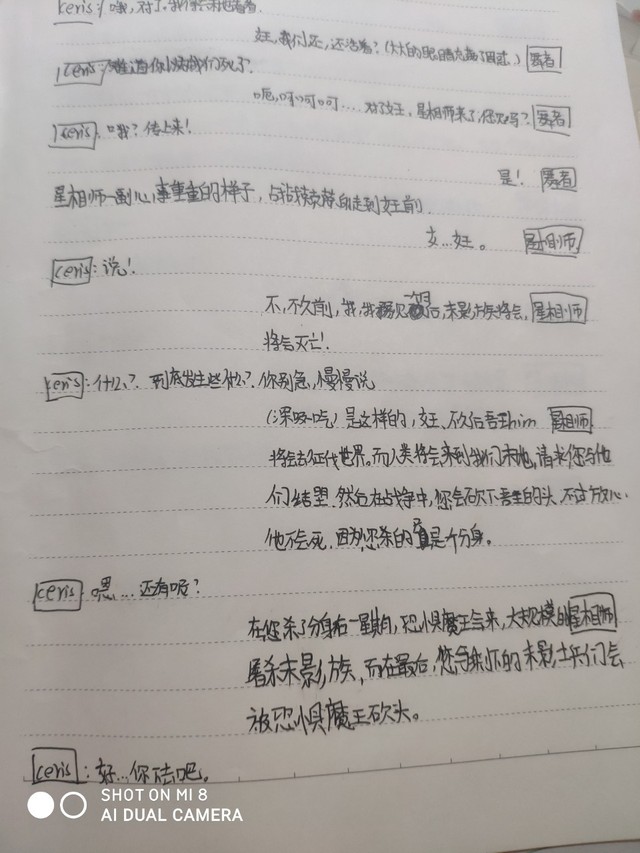 keris: 哦,对了,我们
女王,我们还,还活着?(大大的眼睛充满了困惑。) 暮者
keris: 难道你以为我们死了?
呃,呵呵呵…,对了女王,星相师来了,您见吗? 暮者
keris: 哦?传上来!
是! 暮者
星相师一副心事重重的样子,走到女王前.
女…女王。 星相师
keris: 说!
不,不久前,我,我预见后,末影族将会, 星相师
将会灭亡!
keris: 什么?到底发生些什么?你别急,慢慢说
(深呼吸)是这样的,女王,不久后吾王him 星相师
将会去征伐世界。而人类将会来到我们末地,请求您与他
们结盟.然后在战争中,您会砍下吾王的头,不过放心.
他不会死,因为您杀的真是个分身。
keris: 嗯…还有呢?
在您杀了分身后一星期,恐惧魔王会来,大规模的 星相师
屠杀末影族,而在最后,您和你的末影士兵们会
被恐惧魔王砍头。
keris: 好…你下去吧。
SHOT ON MI 8
AI DUAL CAMERA